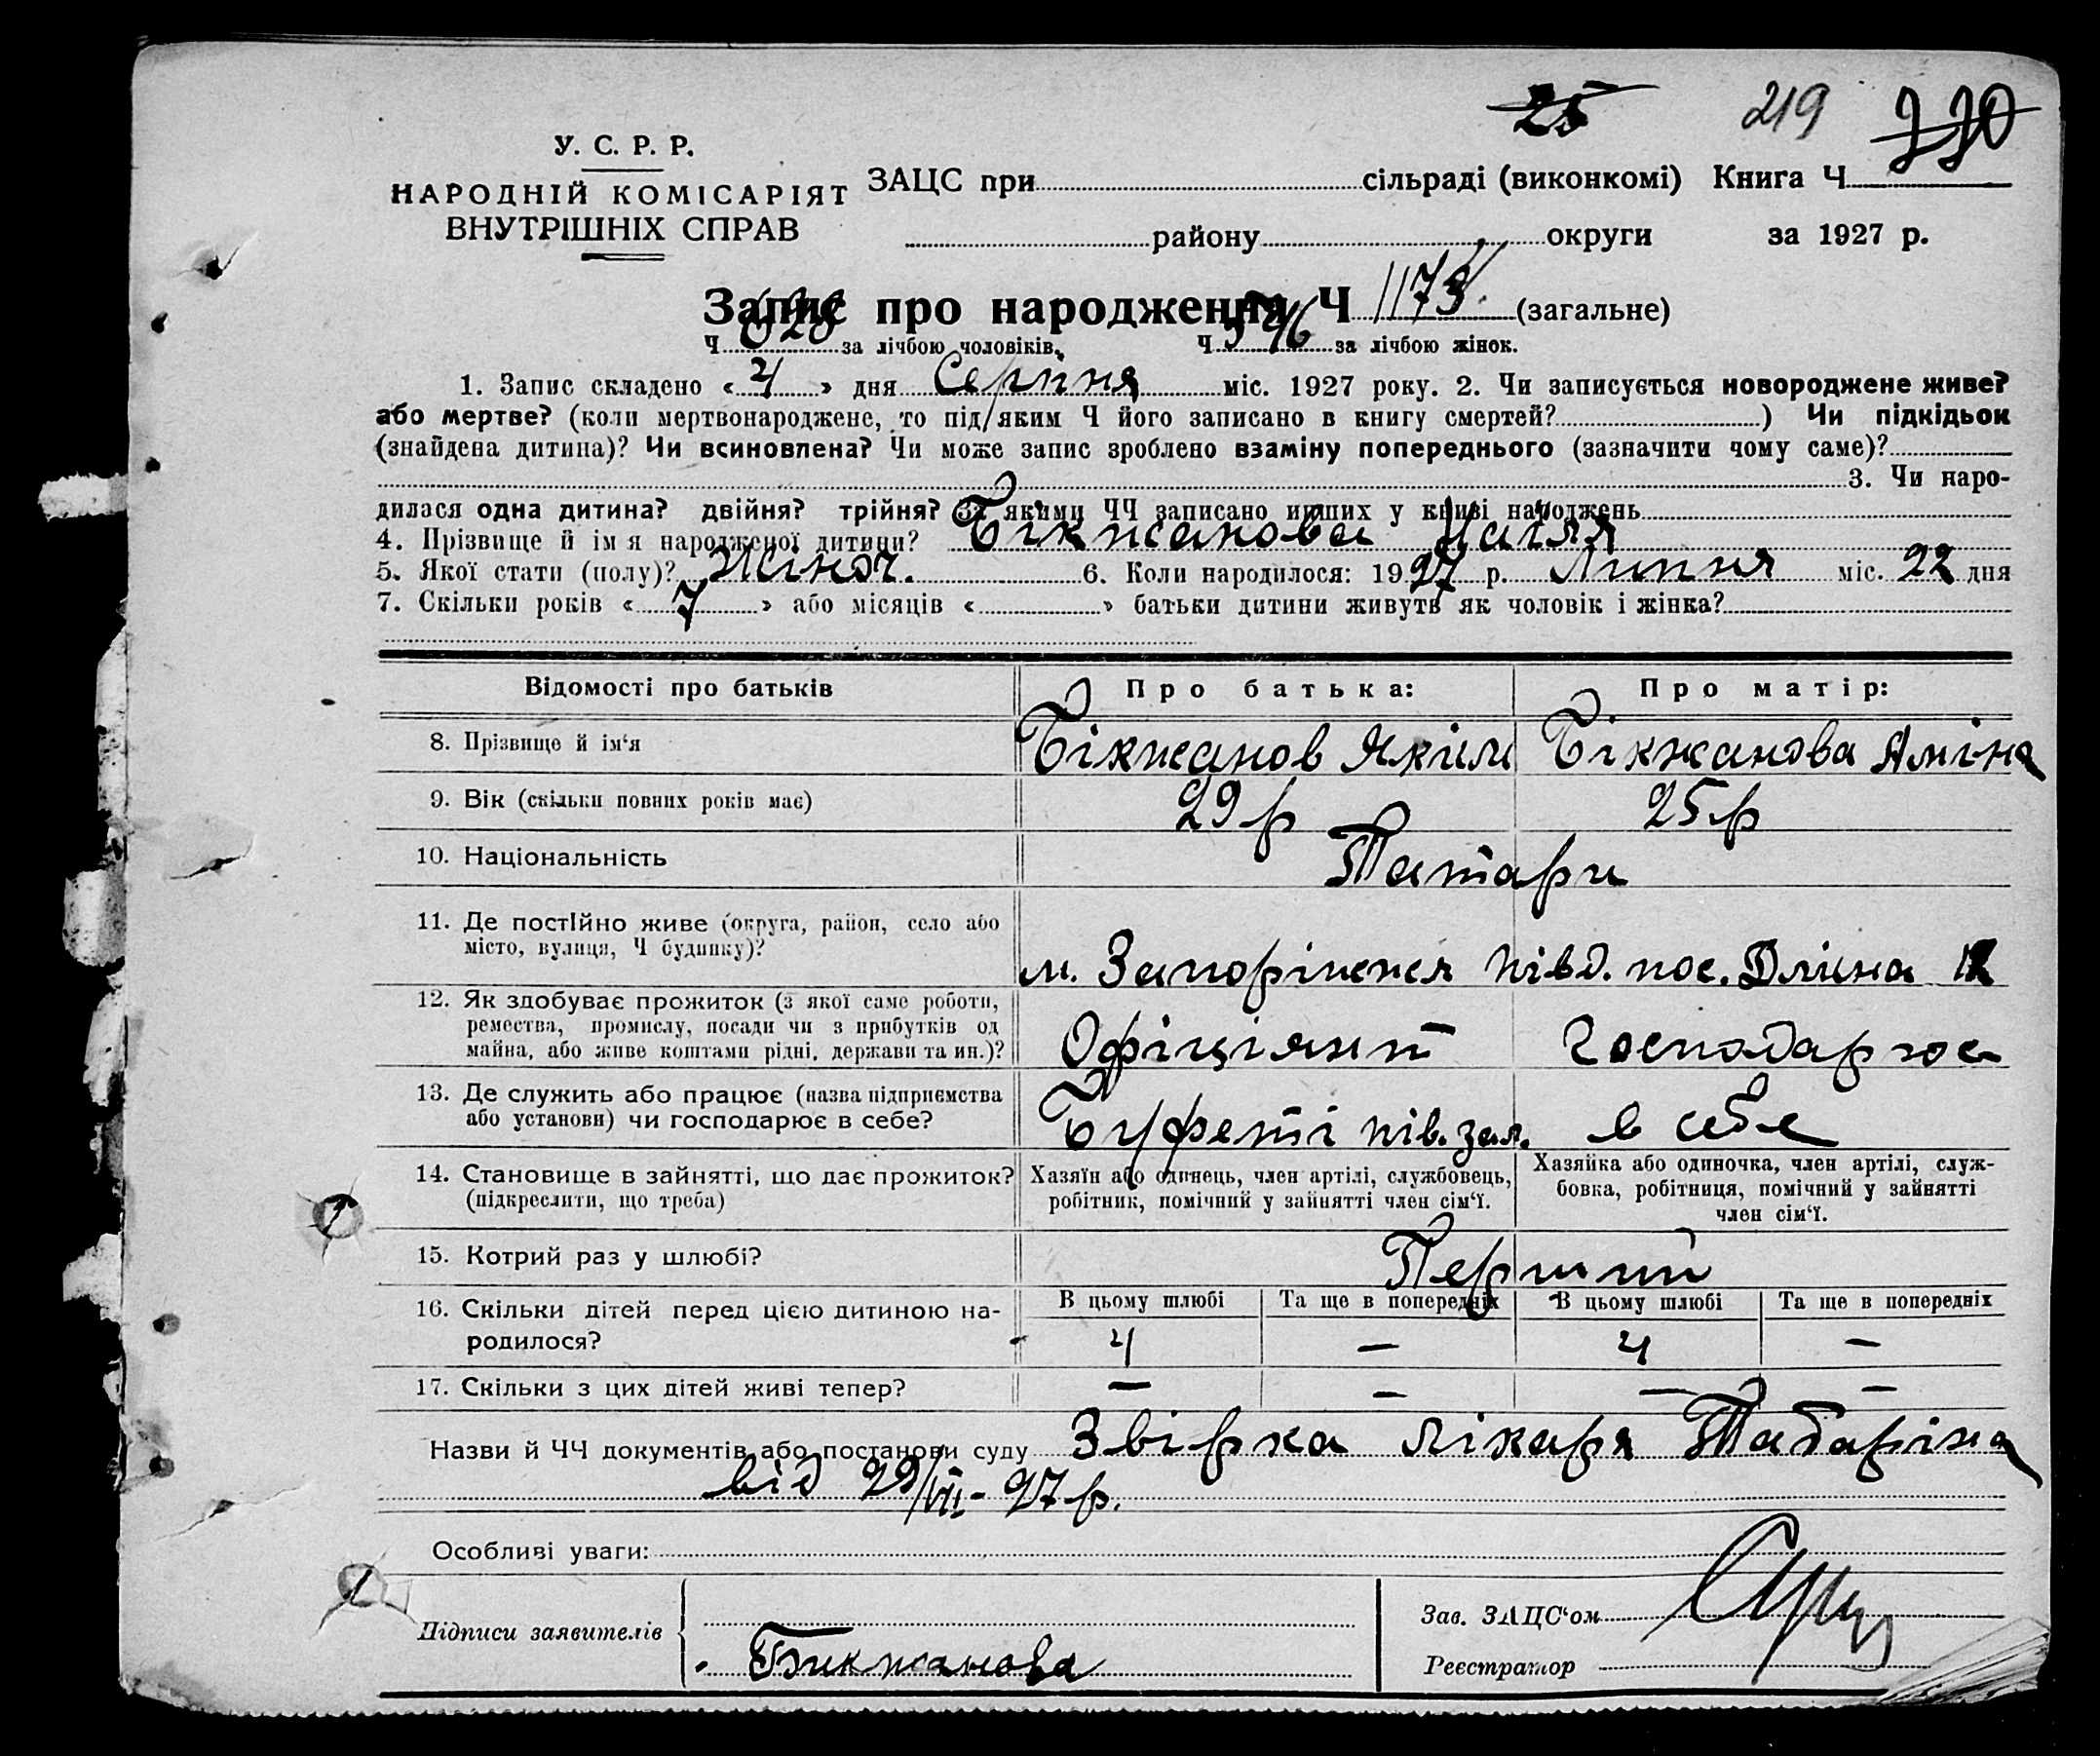 25 219 220
У. С. Р. Р.
НАРОДНІЙ КОМІСАРІЯТ
ВНУТРІШНІХ СПРАВ
ЗАЦС при сільраді (виконкомі) Книга Ч
району округи за 1927 р.
Запис про народження Ч 1173 (загальне)
Ч 628 за лічбою чоловіків. Ч 546 за лічбою жінок.
1. Запис складено « 4 » дня Серпня міс. 1927 року. 2. Чи записується новороджене живе?
або мертве? (коли мертвонароджене, то під яким Ч його записано в книгу смертей? ) Чи підкідьок
(знайдена дитина)? Чи всиновлена? Чи може запис зроблено взаміну попереднього (зазначити чому саме)?
3. Чи наро-
дилася одна дитина? двійня? трійня? За якими ЧЧ записано инших у книзі народжень
4. Прізвище й ім я народженої дитини? Бікжанова
5. Якої стати (полу)? Жіноч. 6. Коли народилося: 1927 р. Липня міс. 22 дня
7. Скільки років « 7 » або місяців « » батьки дитини живуть як чоловік і жінка?
Відомості про батьків Про батька: Про матір:
8. Прізвище й ім‘я Бікжанов Яким Бікжанова Аміна
9. Вік (скільки повних років має) 29 р 25 р
10. Національність Татари
11. Де постійно живе (округа, район, село або
місто, вулиця, Ч будинку)?
м. Запоріжжя півд. пос. Длина 12
12. Як здобуває прожиток (з якої саме роботи,
ремества, промислу, посади чи з прибутків од
майна, або живе коштами рідні, держави та ин.)?
Офіціянт Господарює
13. Де служить або працює (назва підприємства
або установи) чи господарює в себе?
Буфеті пів. зал. в себе
14. Становище в зайнятті, що дає прожиток?
(підкреслити, що треба)
Хазяїн або одинець, член артілі, службовець,
робітник, помічний у зайнятті член сім‘ї.
Хазяйка або одиночка, член артілі, служ-
бовка, робітниця, помічний у зайнятті
член сім‘ї.
15. Котрий раз у шлюбі? Перший
16. Скільки дітей перед цією дитиною на-
родилося?
В цьому шлюбі Та ще в попередніх В цьому шлюбі Та ще в попередніх
4 — 4 —
17. Скільки з цих дітей живі тепер? — — — —
Назви й ЧЧ документів або постанови суду Звірка лікаря Табаріна
від 29/VII - 27 р.
Особливі уваги:
Підписи заявителів
Бикжанова
Зав. ЗАЦС‘ом
Реєстратор